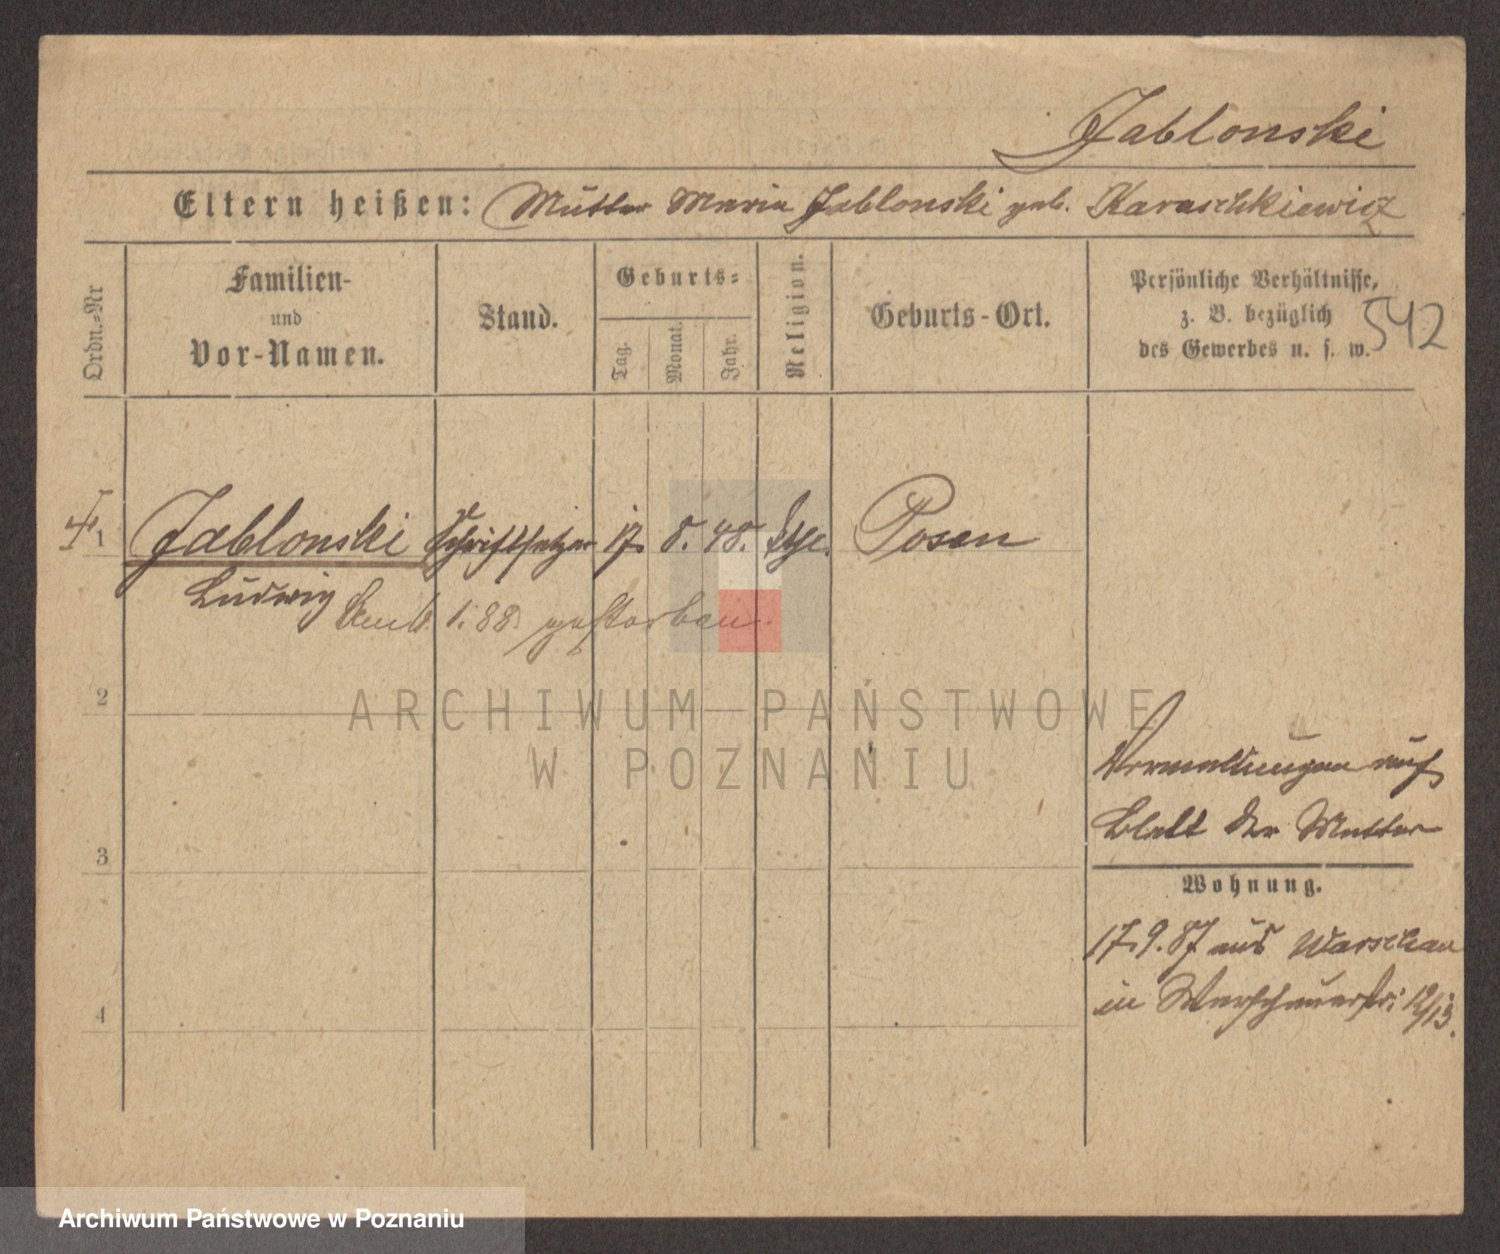 Jablonski
Eltern heißen: Mutter Maria Jablonski geb. Karaschkiewicz
Ordn.-Nr
Familien-
und
Vor-Namen.
Stand.
Geburts-
Tag.
Monat.
Jahr.
Religion.
Geburts-Ort.
Persönliche Verhältnisse,
z. B. bezüglich
des Gewerbes u. s. w.
542
1 Jablonski Schriftsetzer 17. 8. 48. Posen
Ludwig
1. 88. gestorben.
2
ARCHIWUM PAŃSTWOWE
W POZNANIU
auf
Blatt der Mutter
3
Wohnung.
17.9.87 aus Warschau
in 12/13.
4
Archiwum Państwowe w Poznaniu